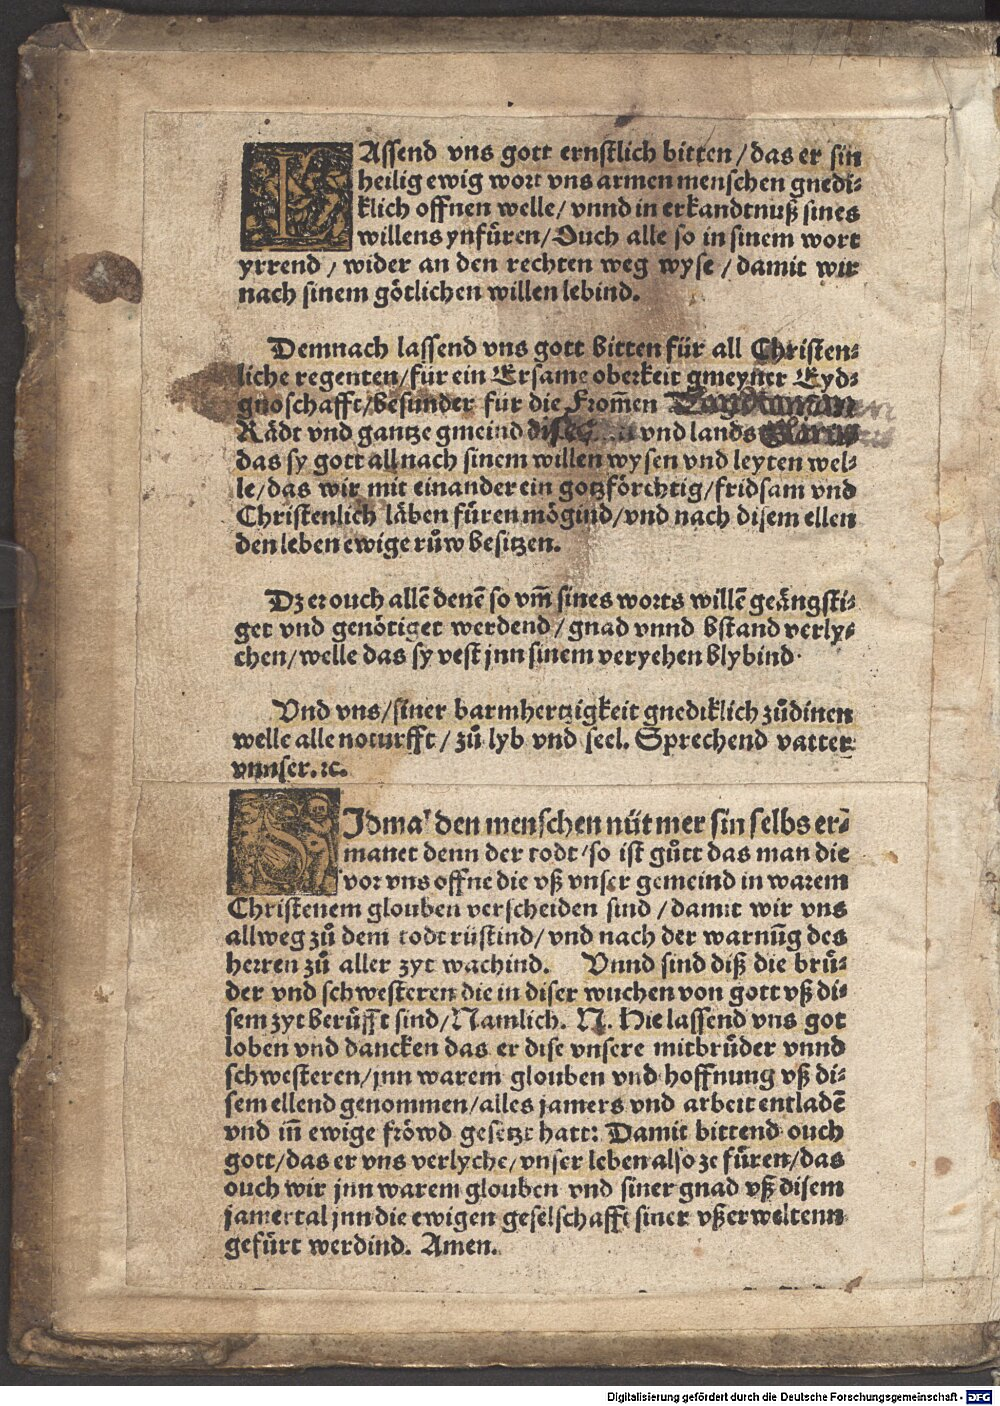 LAssend vns gott ernstlich bitten/das er sin
heilig ewig wort vns armen menschen gnedi⸗
klich offnen welle/ vnnd in erkandtnuß sines
willens ynfüren/Ouch alle so in sinem wort
yrrend / wider an den rechten weg wyse / damit wir
nach sinem götlichen willen lebind.
Demnach lassend vns gott bitten für all Christen⸗
liche regenten/für ein Ersame oberkeit gmeyner Eyd⸗
gnoschafft/besunder für die From̃en
Rädt vnd gantze gmeind vnd lands Glarus
das sy gott all nach sinem willen wysen vnd leyten wel⸗
le/das wir mit einander ein gotzförchtig/fridsam vnd
Christenlich läben füren mögind/vnd nach disem ellen
den leben ewige růw besitzen.
Dz er ouch allẽ denẽ so vm̃ sines worts willẽ geängsti⸗
get vnd genötiget werdend/gnad vnnd bstand verly⸗
chen/welle das sy vest jnn sinem veryehen blybind·
Vnd vns/siner barmhertzigkeit gnediklich zůdinen
welle alle noturfft/ zů lyb vnd seel. Sprechend vatter
vnnser.ꝛc.
SIdmal den menschen nüt mer sin selbs er⸗
manet denn der todt/so ist gůtt das man die
vor vns offne die vß vnser gemeind in warem
Christenem glouben verscheiden sind /damit wir vns
allweg zů dem todt rüstind/ vnd nach der warnũg des
herren zů aller zyt wachind. Vnnd sind diß die brů⸗
der vnd schwesteren die in diser wuchen von gott vß di⸗
sem zyt berůfft sind/Namlich. N. Hie lassend vns got
loben vnd dancken das er dise vnsere mitbrůder vnnd
schwesteren/jnn warem glouben vnd hoffnung vß di⸗
sem ellend genommen/alles jamers vnd arbeit entladẽ
vnd iñ ewige fröwd gesetzt hatt: Damit bittend ouch
gott/das er vns verlyche/vnser leben also ze füren/das
ouch wir jnn warem glouben vnd siner gnad vß disem
jamertal jnn die ewigen geselschafft siner vßerweltenn
gefürt werdind. Amen.
Digitalisierung gefördert durch die Deutsche Forschungsgemeinschaft - DFG